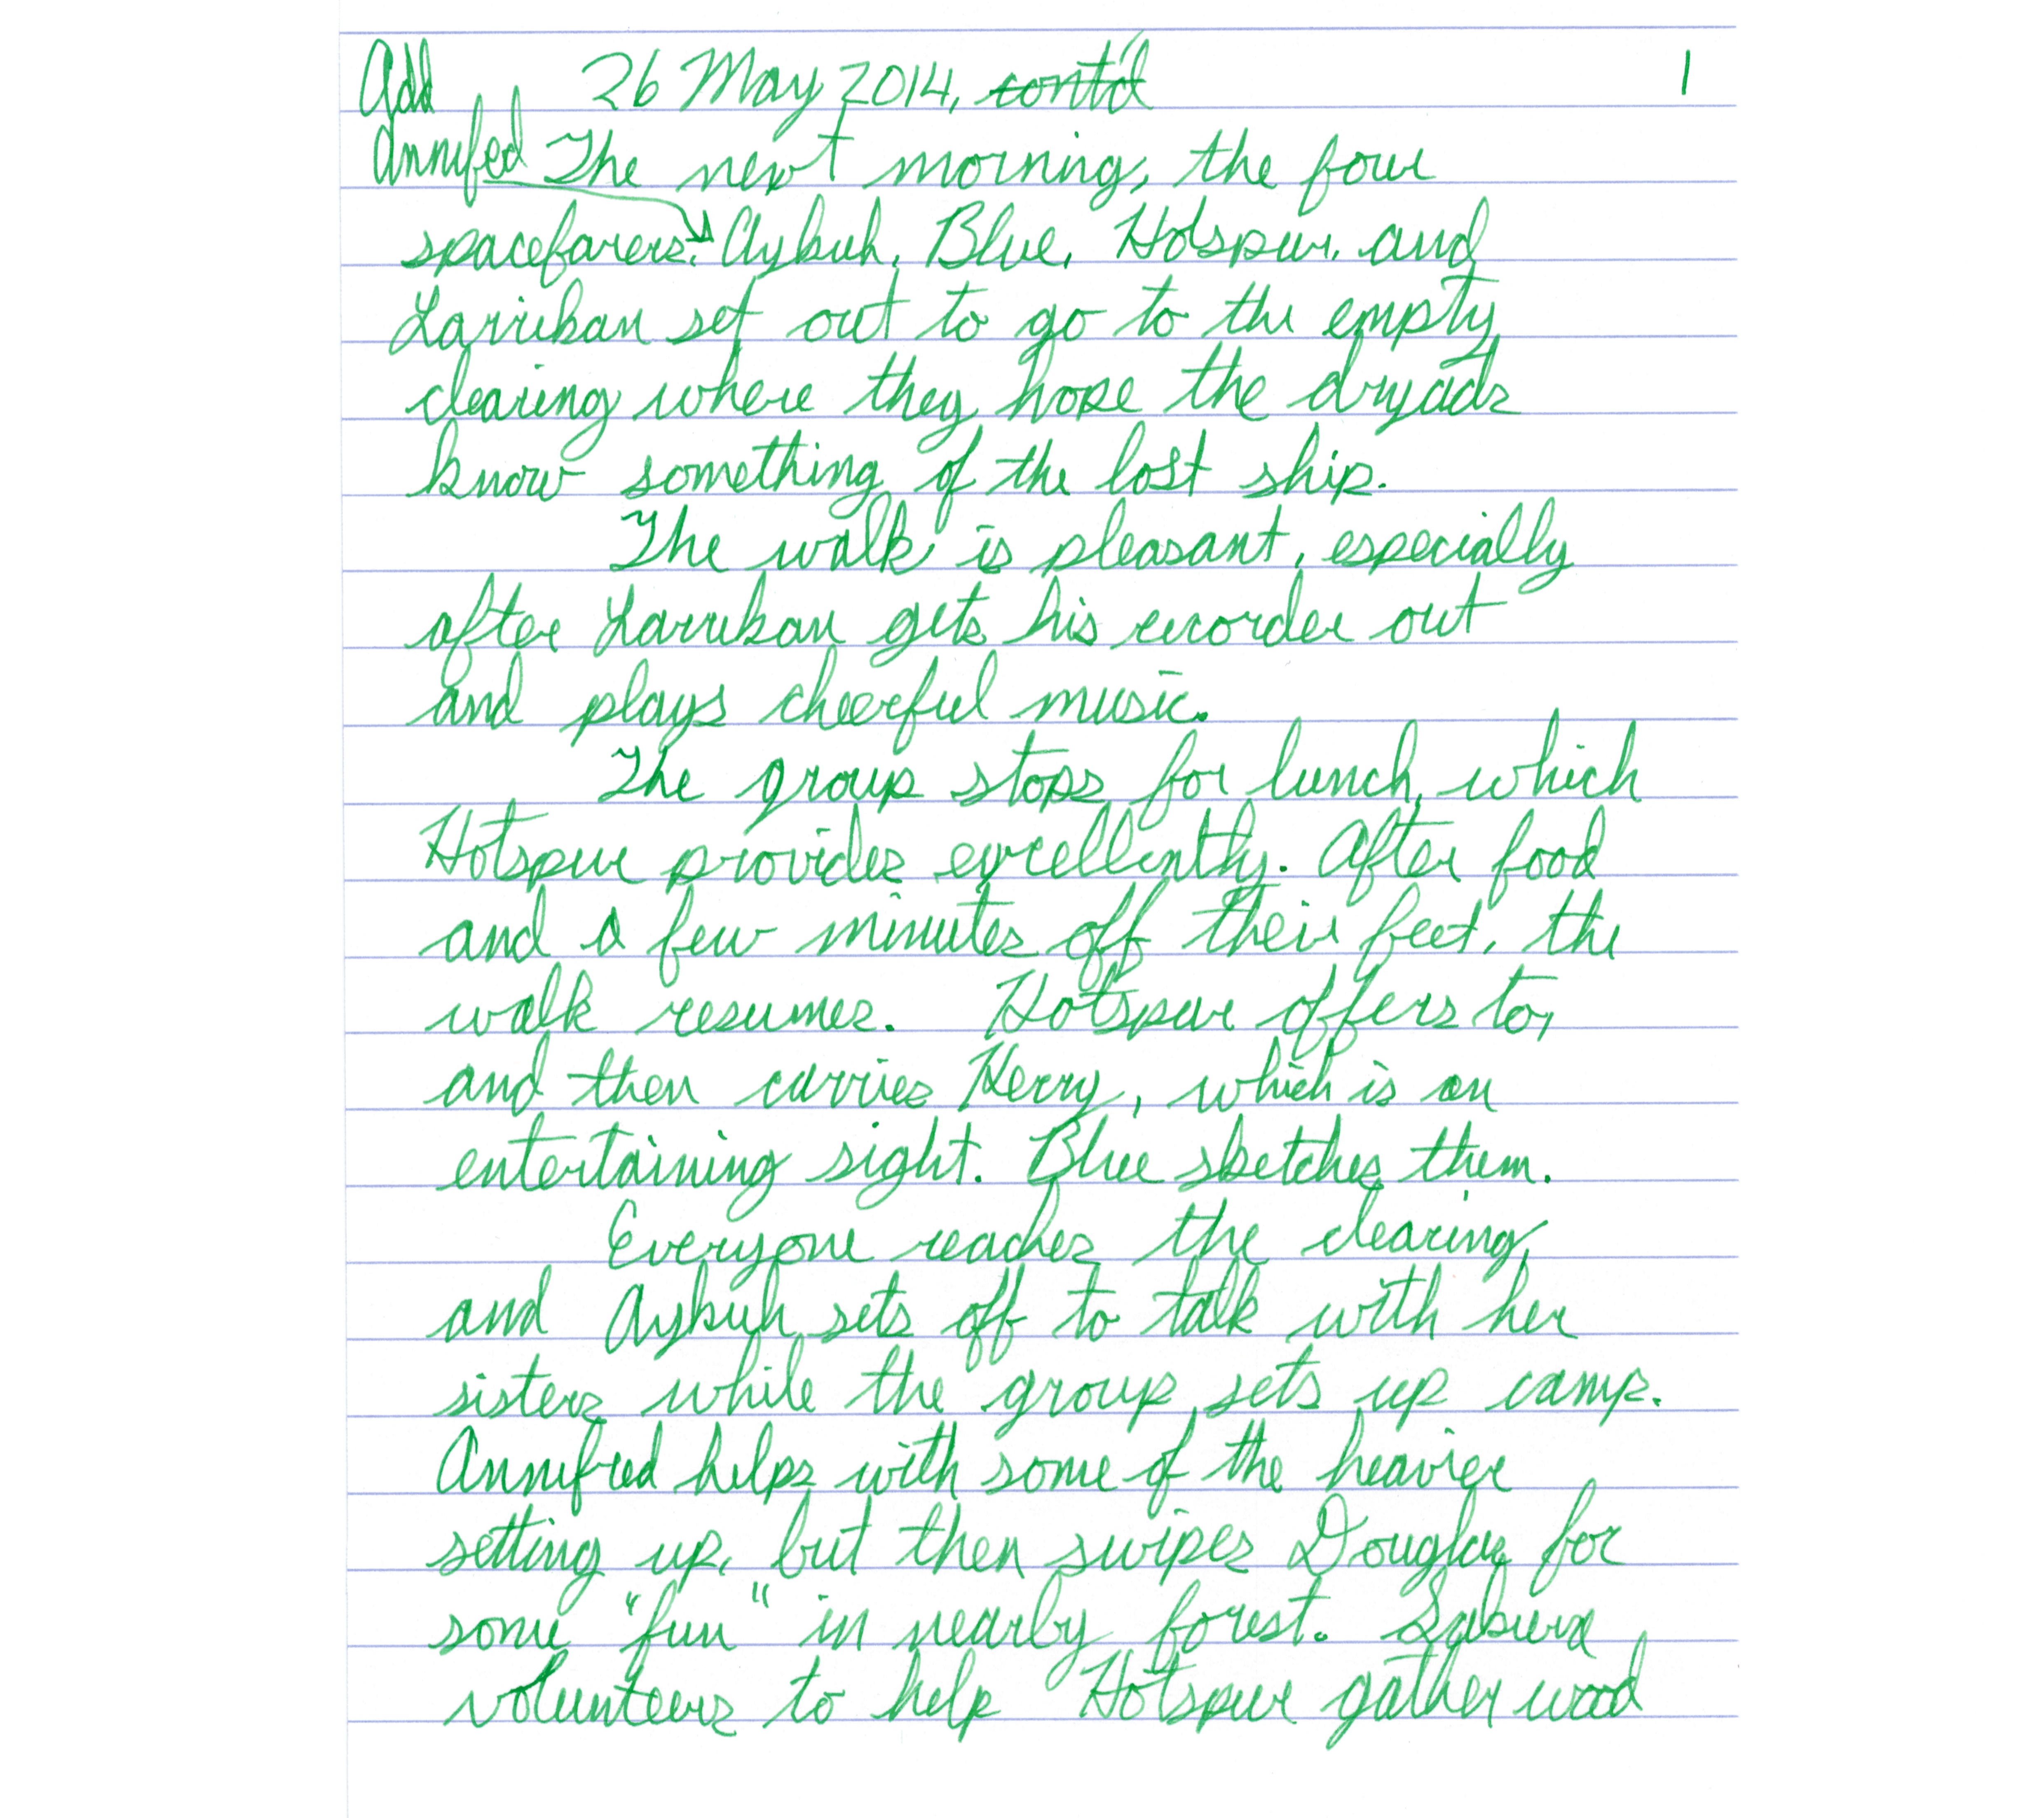 Add 26 May 2014, cont'd 1
Annifred The next morning, the four
spacefarers, Aybuh, Blue, Hotspur, and
Larrikan set out to go to the empty
clearing where they hope the dryads
know something of the lost ship.
The walk is pleasant, especially
after Larrikan gets his recorder out
and plays cheerful music.
The group stops for lunch, which
Hotspur provides excellently. After food
and a few minutes off their feet, the
walk resumes. Hotspur offers to,
and then carries Kerry, which is an
entertaining sight. Blue sketches them.
Everyone reaches the clearing,
and Aybuh sets off to talk with her
sisters while the group sets up camp.
Annifred helps with some of the heavier
setting up, but then swipes Douglas for
some "fun" in nearby forest. Sakura
volunteers to help Hotspur gather wood